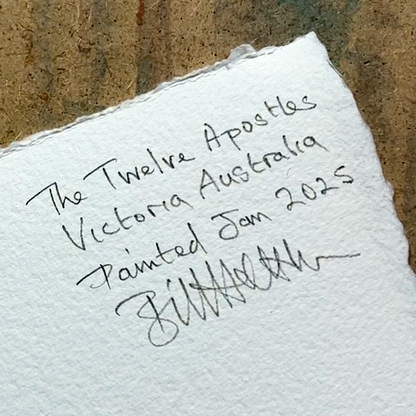 The Twelve Apostles
Victoria Australia
Painted Jan 2025
Bill